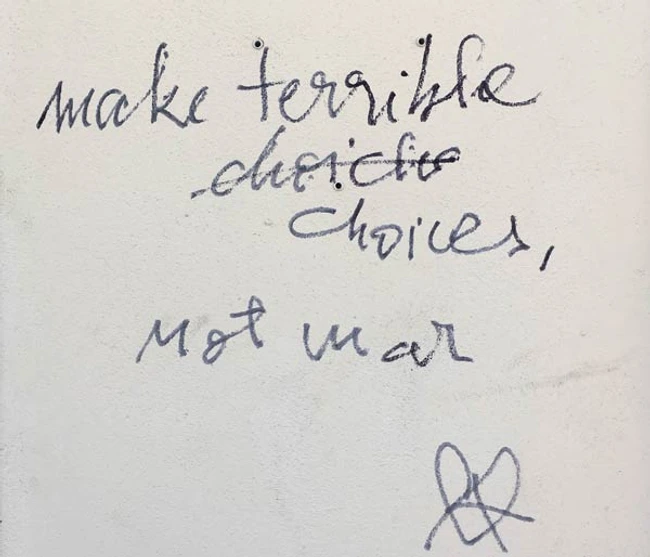 make terrible
choiche
choices,
not war